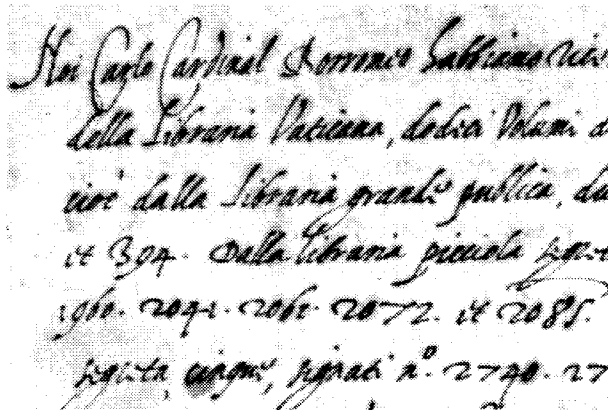 Noi Carlo Cardinal Borromeo habbiamo
della Libraria Vaticana, dodeci Volumi
cioè dalla Libraria grande publica,
et 394. Dalla libraria picciola
1960. 2041. 2061. 2072. et 2085.
segreta, cinque, signati nº. 2740. 27